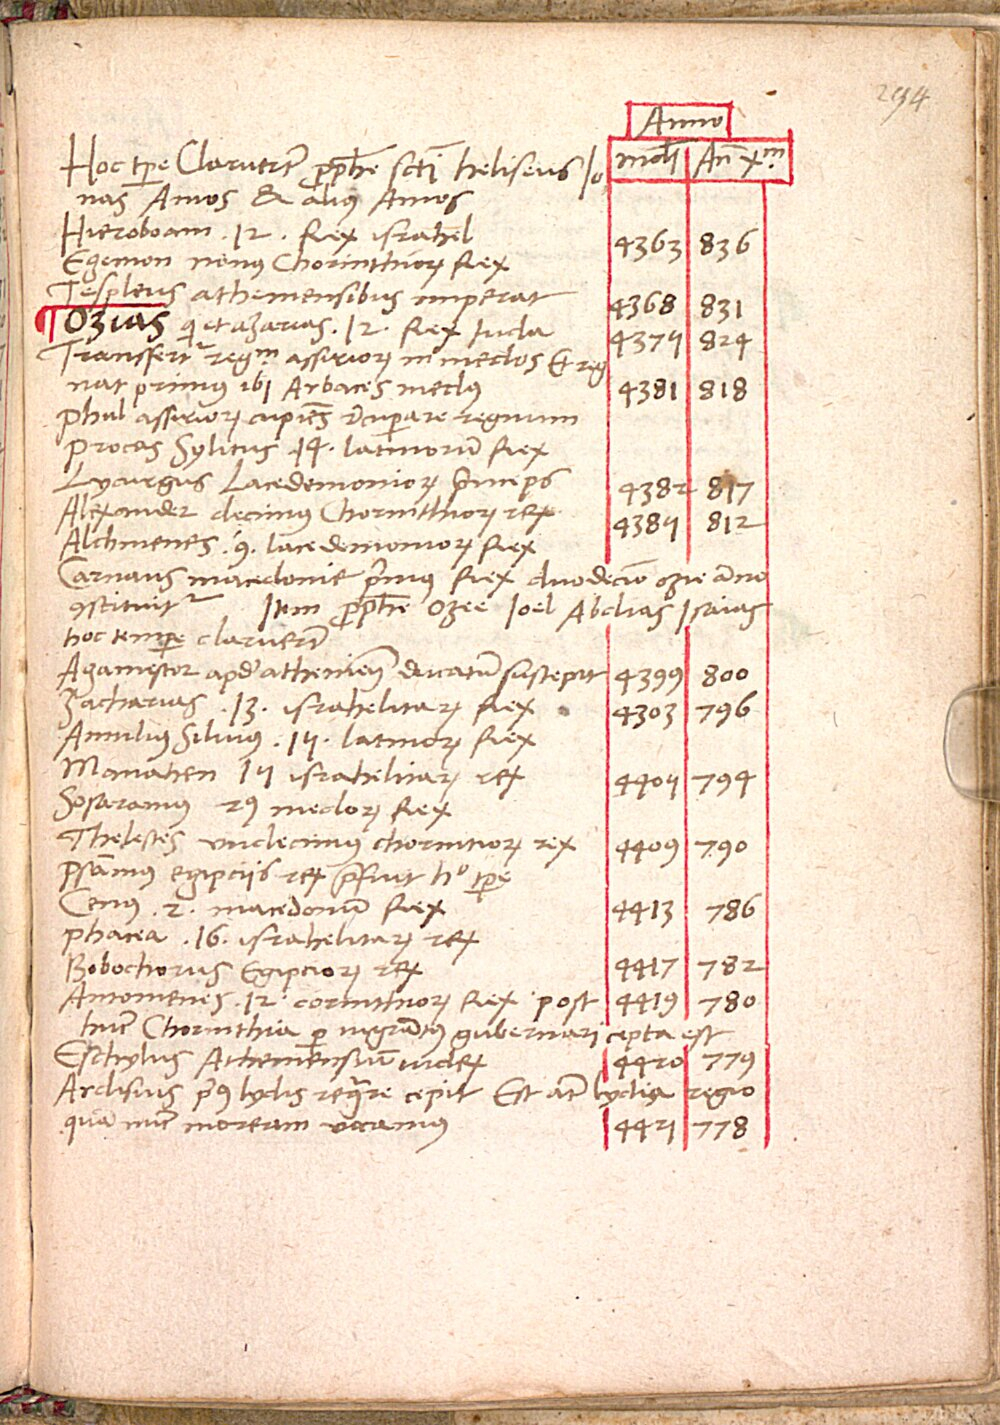 294
Anno
mūdi Añ xᵐ
Hoc tp̄e Claruerūt ꝓph̄e sctī heliseus Io
nas Amos & alius Amos
Hieroboam . 12 . Rex israhel 4363 836
Egemon nonus Chorinthiorꝝ Rex
Tespleus atheniensibus imperat 4368 831
Ozias qi et azarias . 12 . Rex Iuda 4375 824
Transfertʳ regᵐ assiriorꝝ in medos Et reg
nat primus ibi Arbaces medus 4381 818
Phul assiriorꝝ cupiēs recuperare regnum
Procas Sylvius .14. latinorū Rex
Lycurgus Lacedemoniorꝝ p̄nceps 4382 817
Alexander decimus Chorinthiorꝝ rex 4385 812
Alchmenes .9. lacedemoniorꝝ Rex
Carnaus macedonie p̄mus Rex duodecīo ozie āno
ꝯstituitʳ Item ꝓph̄e Ozee Ioel Abdias Isaias
hoc tempe claruerūt
Agamestor apd' atheniēs ducatū suscepit 4399 800
Zacharias .13. israhelitarꝝ Rex 4303 796
Amulius Silvius .15. latinorꝝ Rex
Manahen 15 israhelitarꝝ rex 4405 794
Sosarmus 2ꝰ medorꝝ Rex
Thelestes undecimus chorintiorꝝ rex 4409 790
Psāmus egiptiis rex p̄fuit hº tp̄e
Cenus .2. macedonū Rex 4413 786
phacea .16. israhelitarꝝ rex
Bobochorius Egiptiorꝝ rex 4417 782
Antomenes .12. corinthiorꝝ Rex post 4419 780
hūc Chorinthia ꝑ migrātus gubernari cepta est
Eschylus Atheniensium iudex 4420 779
Ardisius p̄9 lydis regnare cepit Est aūt lydia regio
quā nūc moream vocamus 4421 778